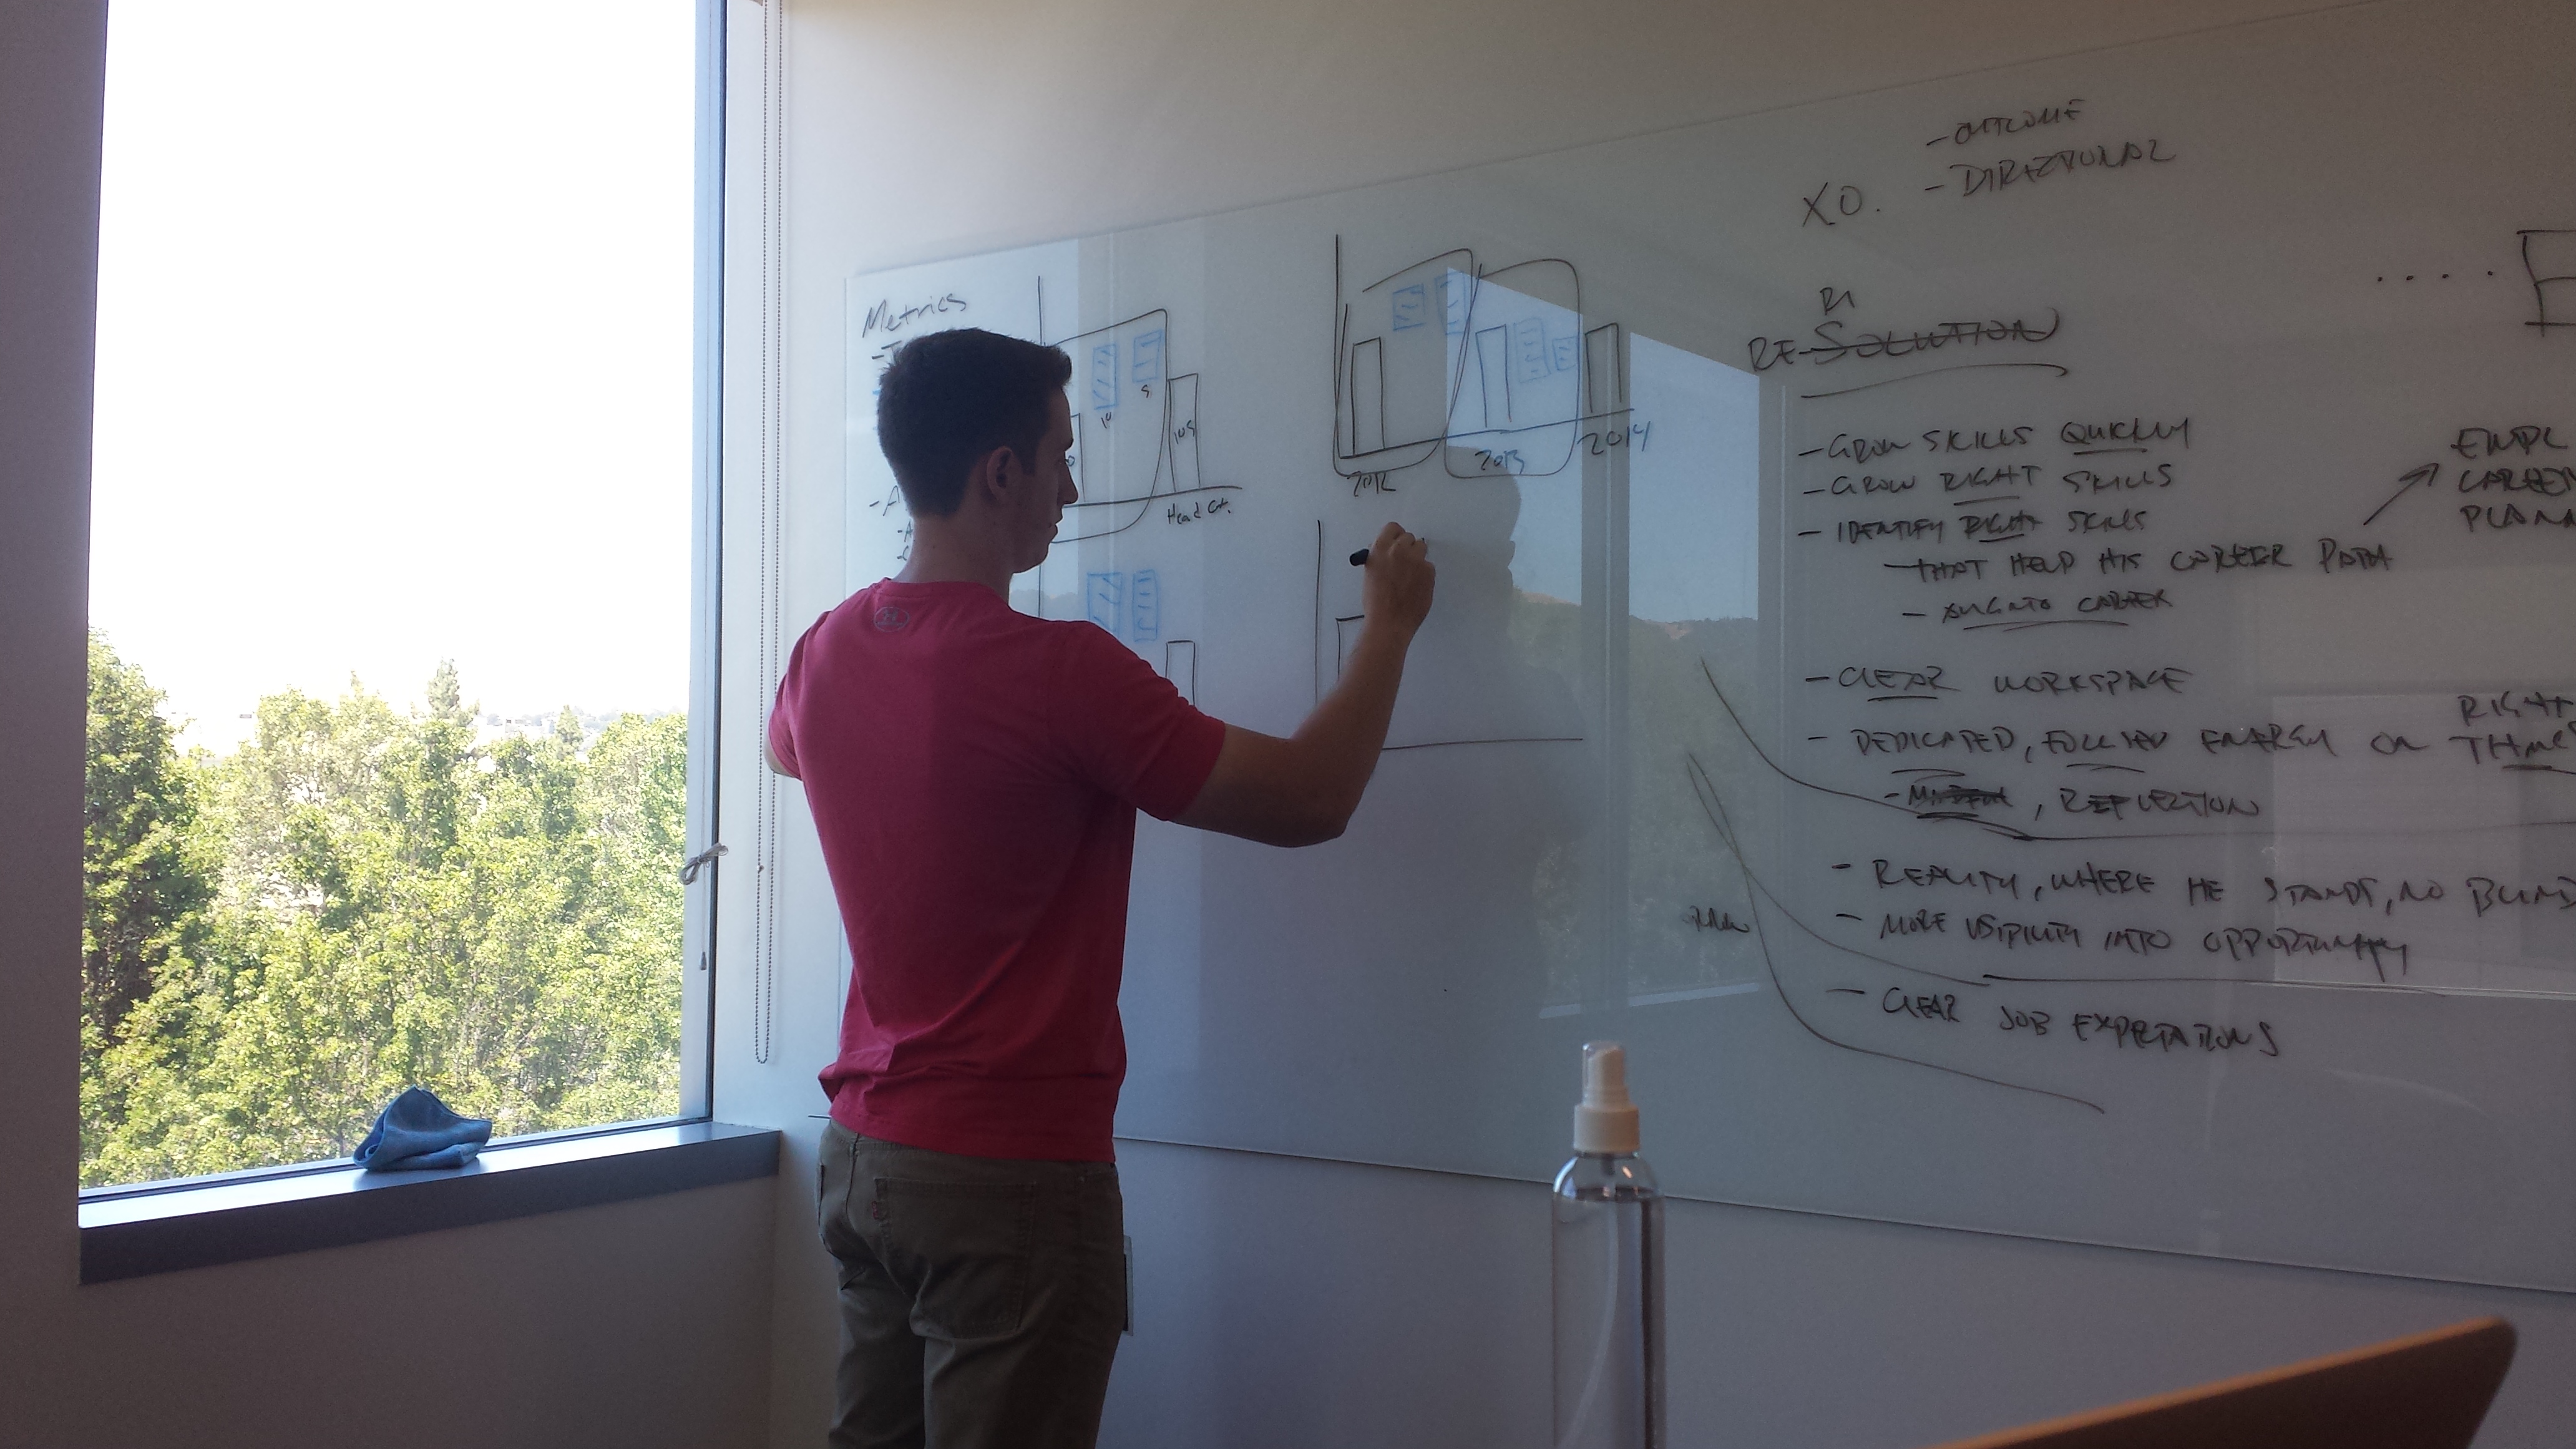 Metrics
10
5
105
Head Ct.
2012
2013
2014
- OUTCOME
XO. - DIRECTIONAL
RE-SOLUTION
- GROW SKILLS QUICKLY
- GROW RIGHT SKILLS
- IDENTIFY RIGHT SKILLS
- THAT HELP HIS CAREER PATH
- CAREER
EMPL
CAREER
PLANN
- CLEAR WORKSPACE
RIGHT
- DEDICATED, FOCUSED ENERGY ON
, REFLECTION
- REALITY, WHERE HE STANDS, NO BLIND
- MORE VISIBILITY INTO OPPORTUNITY
- CLEAR JOB EXPECTATIONS